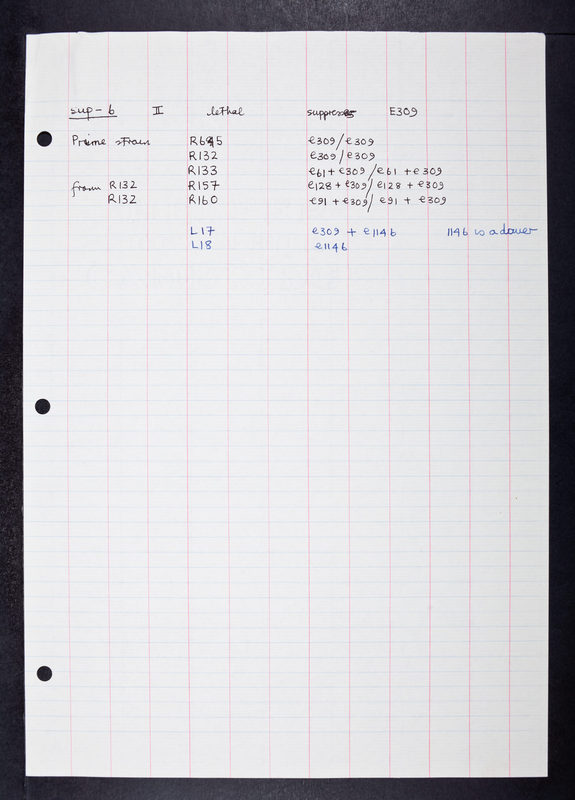 sup-6 II lethal suppresses E309
Prime strain R695 e309/e309
R132 e309/e309
R133 e61 + e309/e61 + e309
from R132 R157 e128 + e309/e128 + e309
R132 R160 e91 + e309/e91 + e309
L17 e309 + e1146 1146 is a
L18 e1146